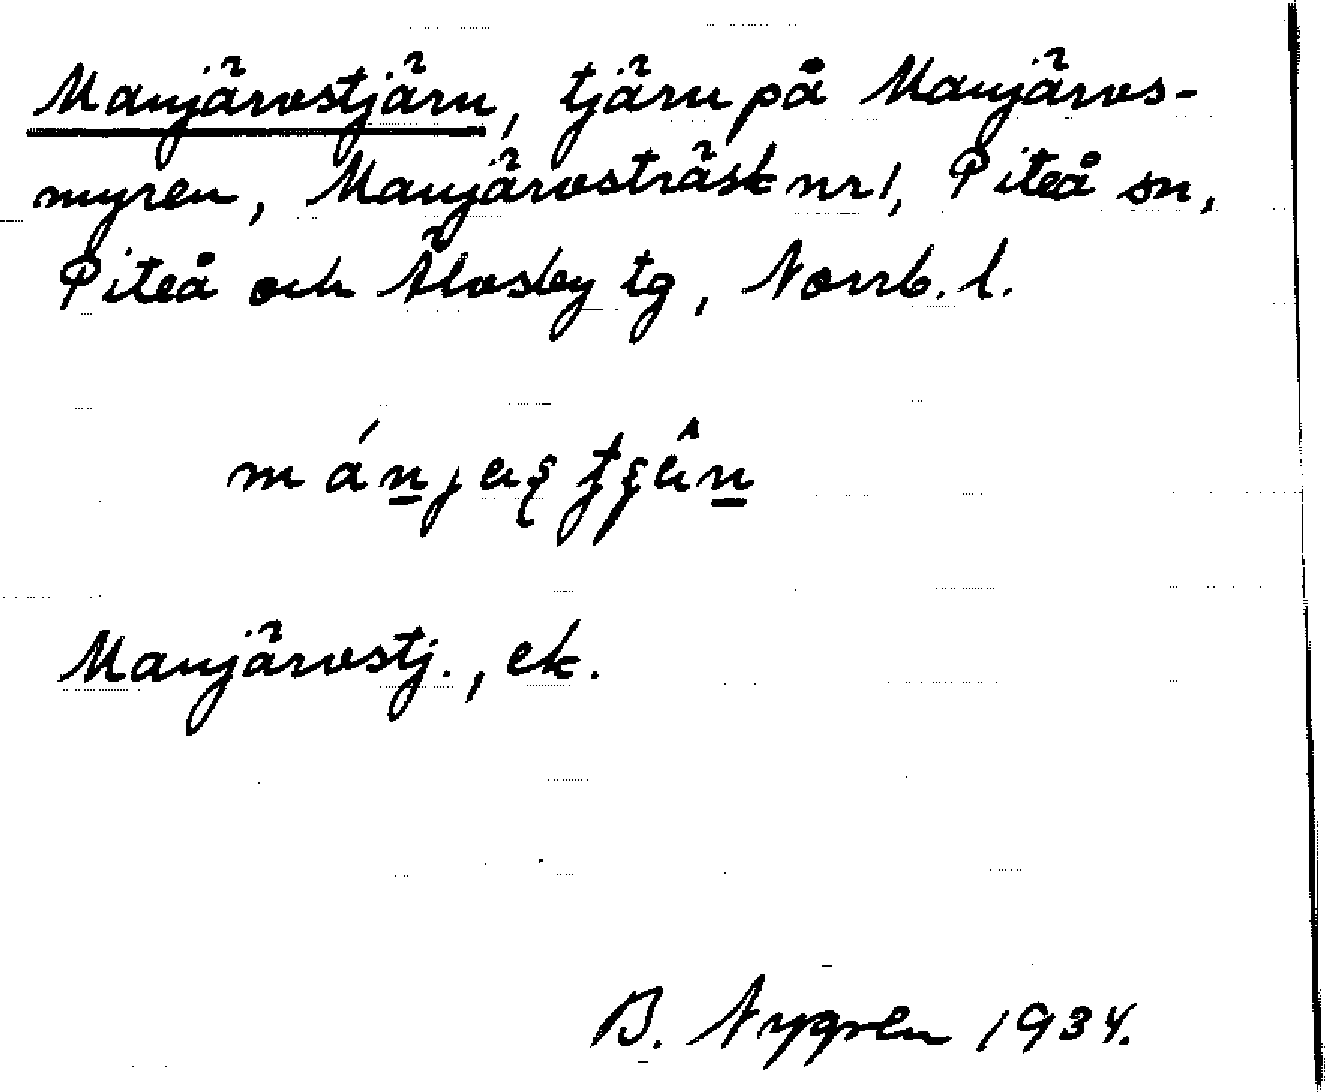 Manjärvstjärn, tjärn på Manjärvs-
myren, Manjärvsträsk nr 1, Piteå sn,
Piteå och Älvsby tg, Norrb. l.
Manjärvstj., ek.
B. Nygren 1934.